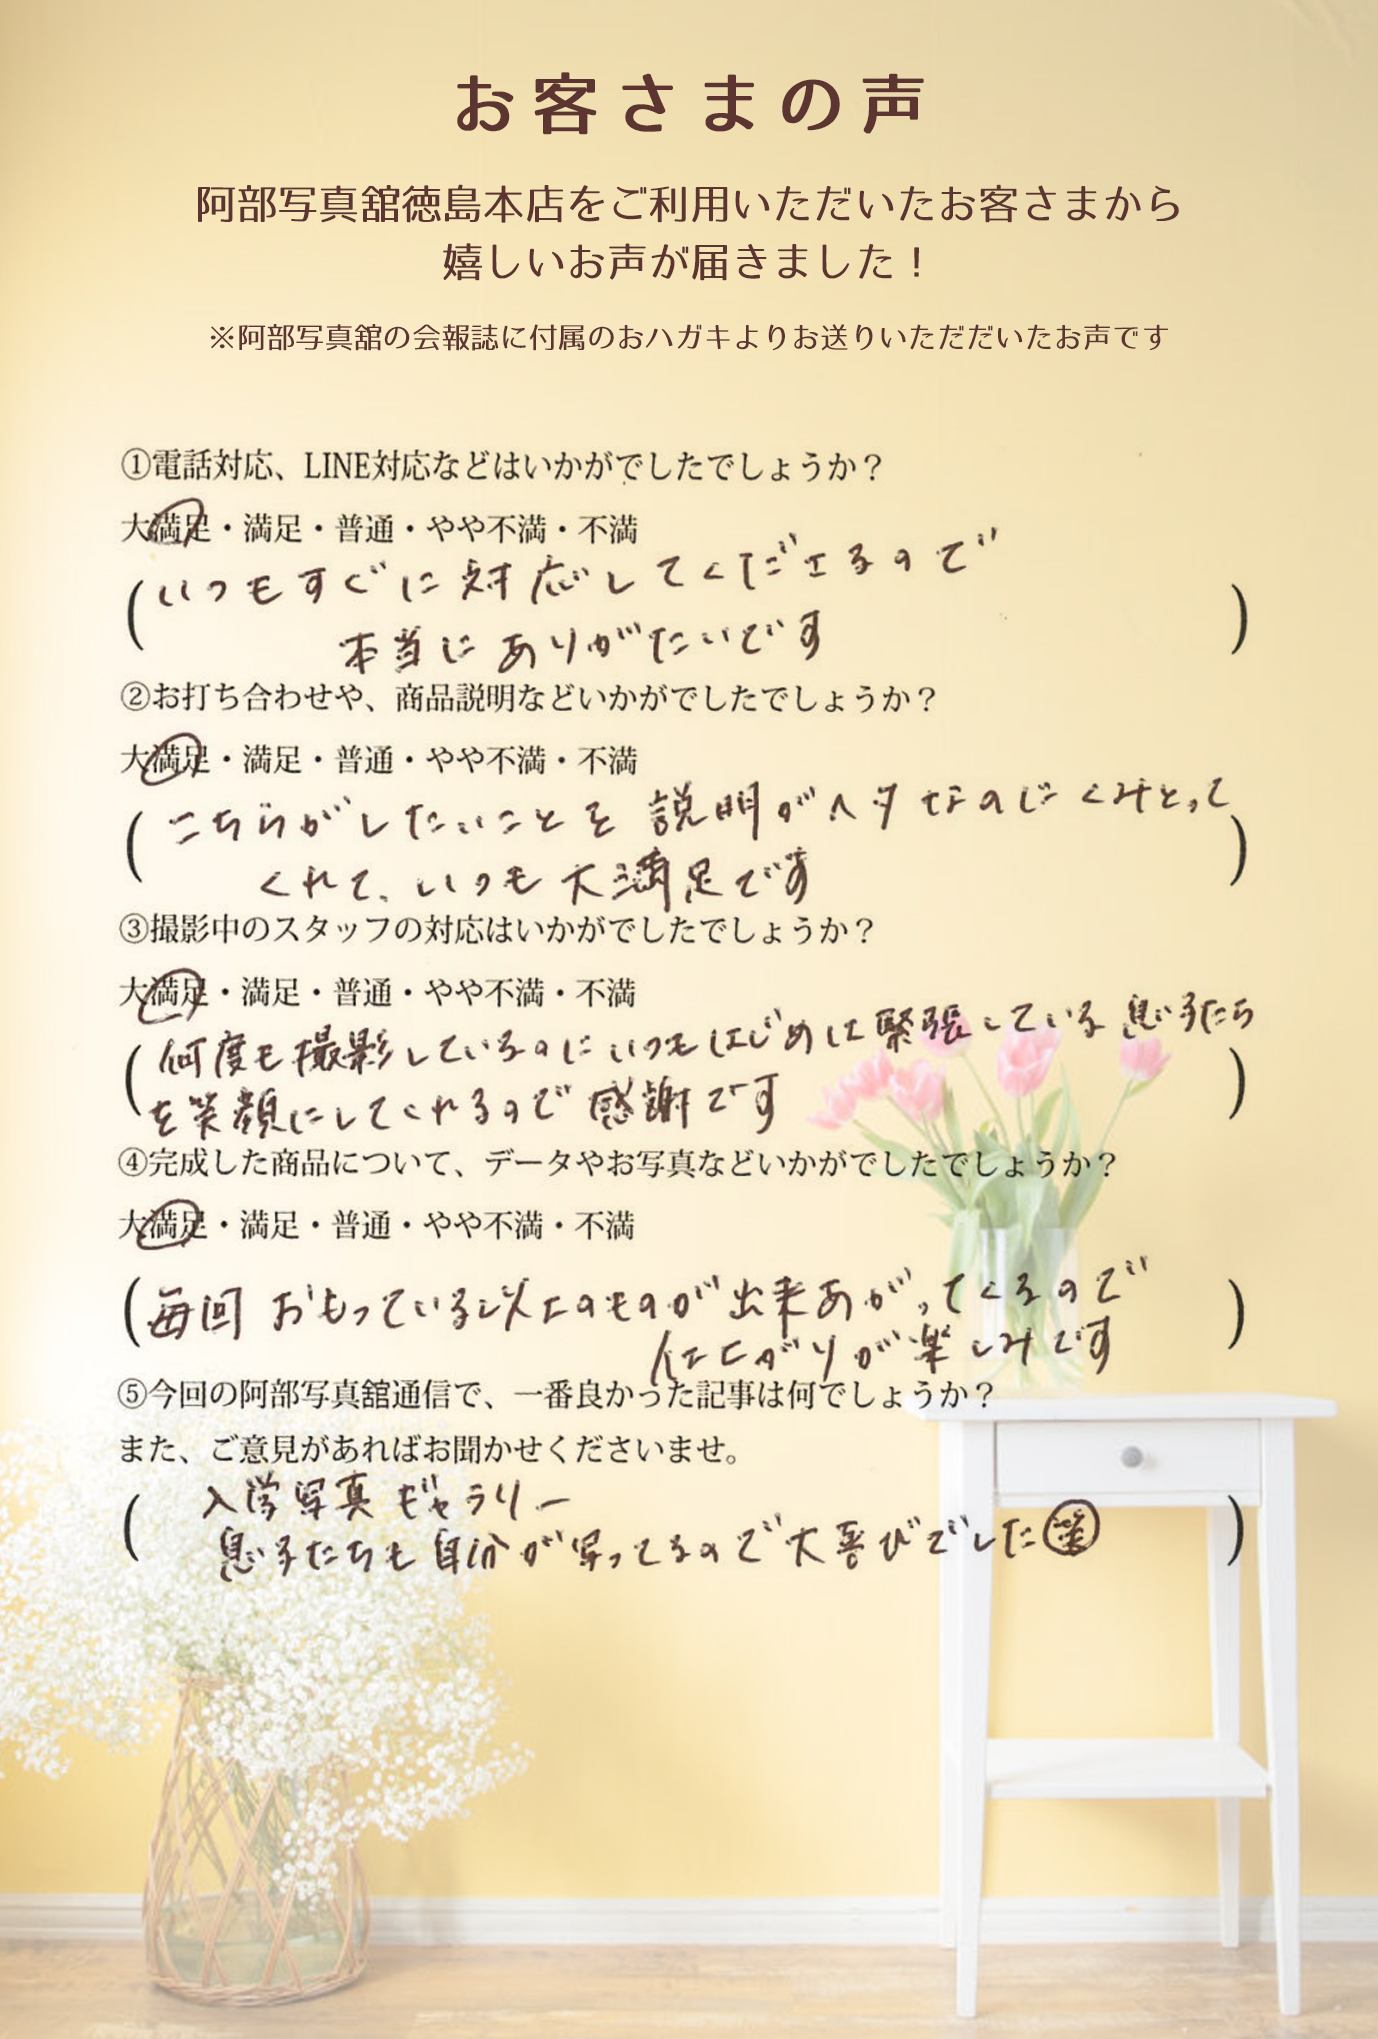 お客さまの声
阿部写真舘徳島本店をご利用いただいたお客さまから
嬉しいお声が届きました！
※阿部写真舘の会報誌に付属のおハガキよりお送りいただだいたお声です
①電話対応、LINE対応などはいかがでしたでしょうか？
大満足・満足・普通・やや不満・不満
(いつもすぐに対応してくださるので
本当にありがたいです)
②お打ち合わせや、商品説明などいかがでしたでしょうか？
大満足・満足・普通・やや不満・不満
(こちらがしたいことを説明がヘタなのにくみとって
くれて、いつも大満足です)
③撮影中のスタッフの対応はいかがでしたでしょうか？
大満足・満足・普通・やや不満・不満
(何度も撮影しているのにいつもはじめは緊張している息子たち
を笑顔にしてくれるので感謝です)
④完成した商品について、データやお写真などいかがでしたでしょうか？
大満足・満足・普通・やや不満・不満
(毎回おもっている以上のものが出来あがってくるので
仕上がりが楽しみです)
⑤今回の阿部写真舘通信で、一番良かった記事は何でしょうか？
また、ご意見があればお聞かせくださいませ。
(入学写真ギャラリー
息子たちも自分が写ってるので大喜びでした㊥)